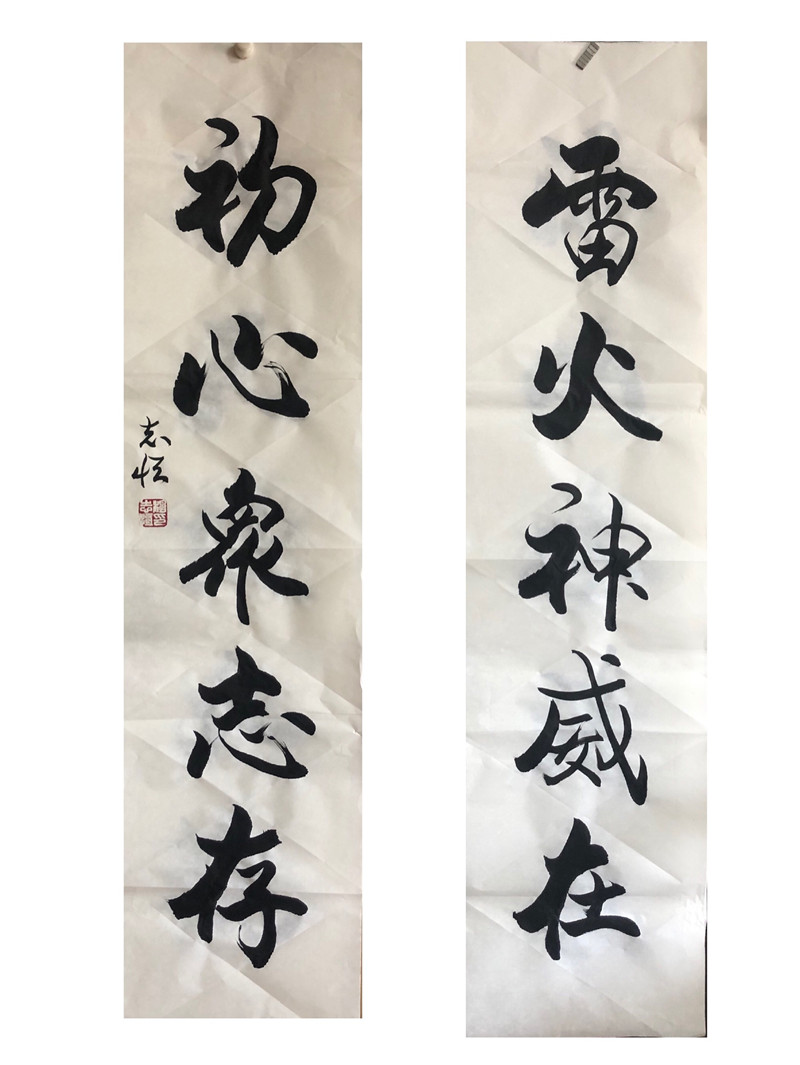 雷火神威在
初心眾志存
志恒